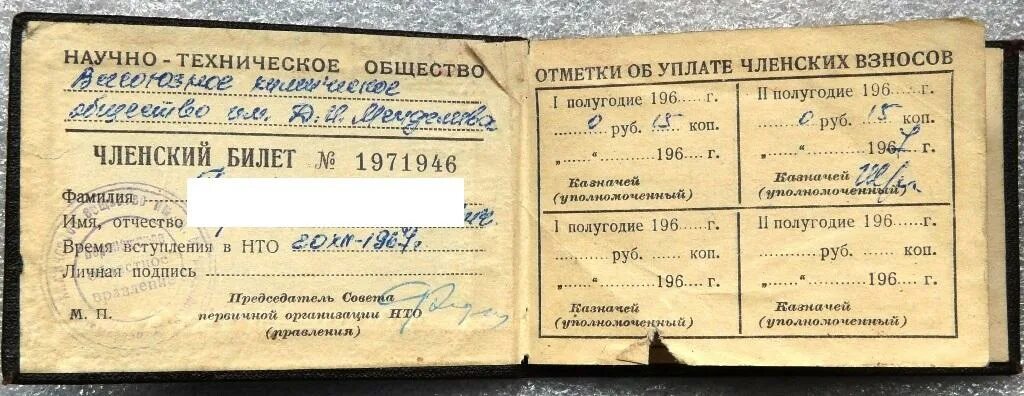 НАУЧНО-ТЕХНИЧЕСКОЕ ОБЩЕСТВО
Всесоюзное химическое
общество им. Д.И. Менделеева
ЧЛЕНСКИЙ БИЛЕТ № 1971946
Фамилия
Имя, отчество
Время вступления в НТО 20 XII-1967г
Личная подпись
Председатель Совета
М. П. первичной организации НТО
(правления)
областное
правление
ОТМЕТКИ ОБ УПЛАТЕ ЧЛЕНСКИХ ВЗНОСОВ
I полугодие 196......г.
0 руб. 15 коп.
„......“ ............196......г.
Казначей
(уполномоченный)
II полугодие 196......г.
0 руб. 15 коп.
„......“ ............1967 г.
Казначей
(уполномоченный)
I полугодие 196......г.
............руб. ............коп.
„......“ ............196......г.
Казначей
(уполномоченный)
II полугодие 196......г.
............руб. ............коп.
„......“ ............196......г.
Казначей
(уполномоченный)